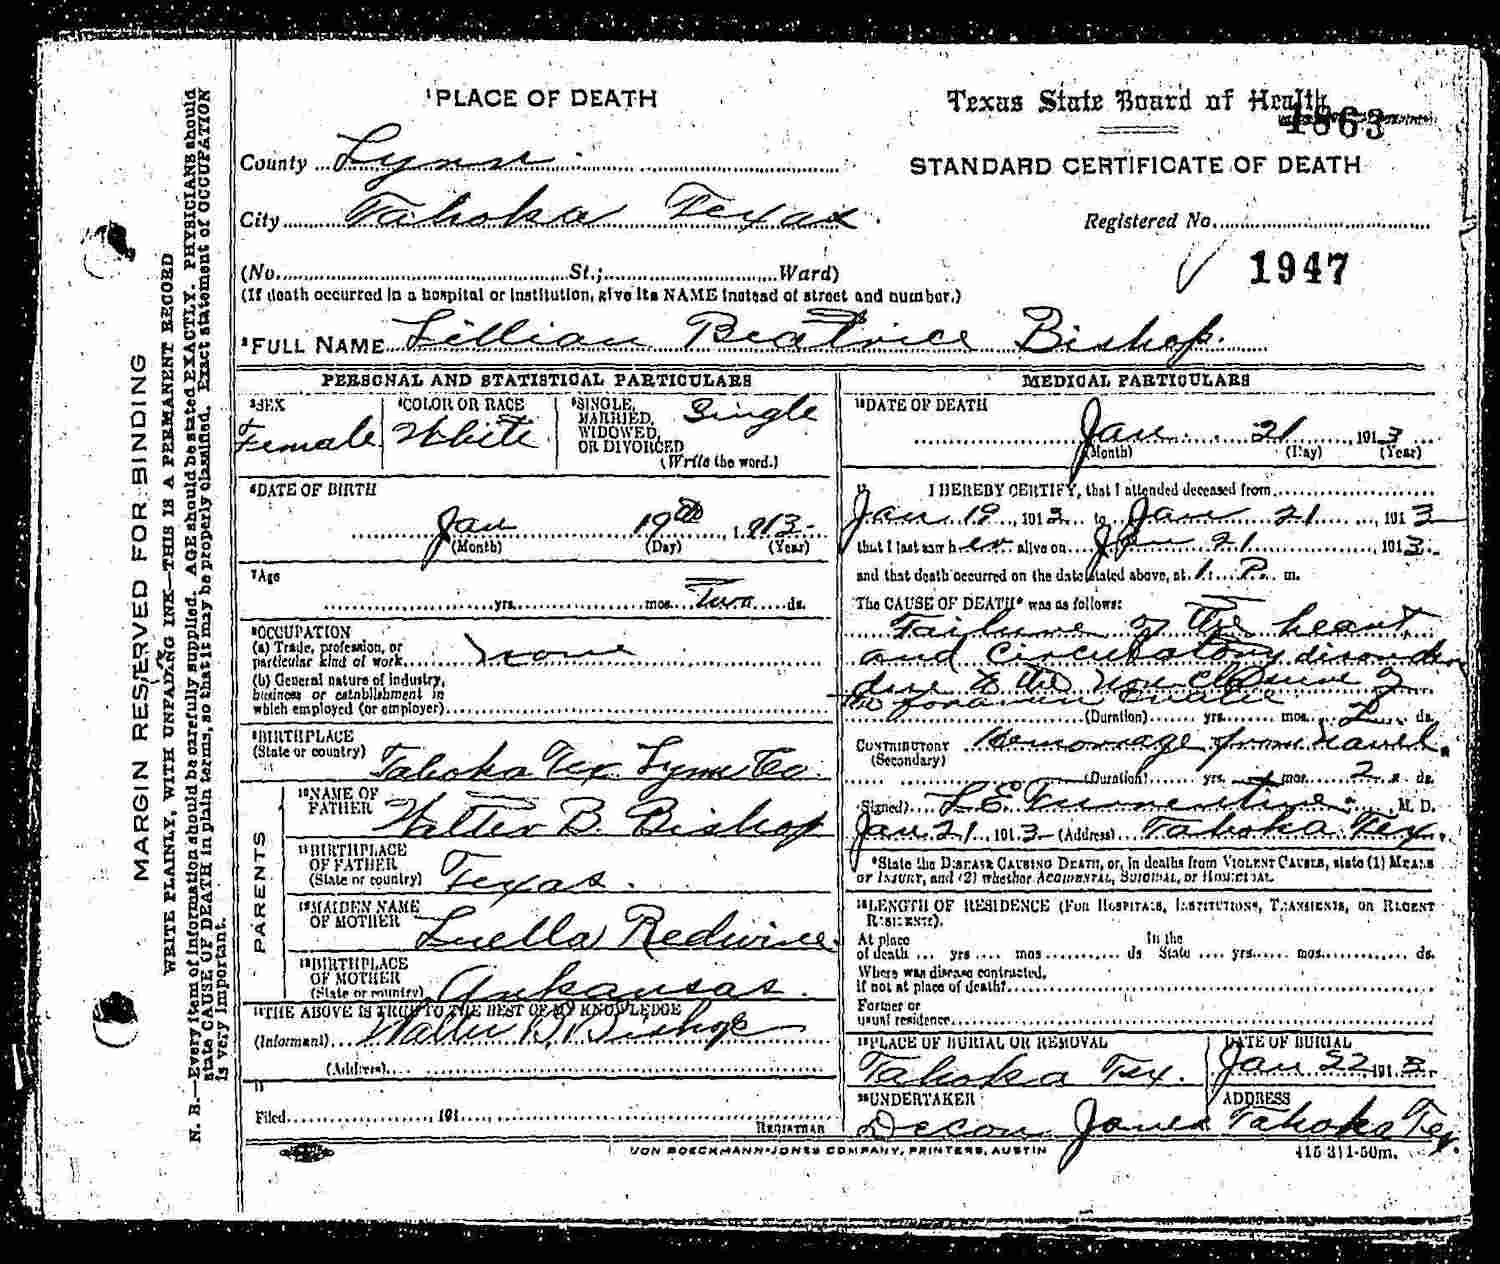 MARGIN RESERVED FOR BINDING
WRITE PLAINLY, WITH UNFADING INK—THIS IS A PERMANENT RECORD
N. B.—Every item of information should be carefully supplied. AGE should be stated EXACTLY. PHYSICIANS should
state CAUSE OF DEATH in plain terms, so that it may be properly classified. Exact statement of OCCUPATION
is very important.
¹PLACE OF DEATH
Texas State Board of Health
4863
County Lynn
STANDARD CERTIFICATE OF DEATH
City Tahoka Texas
Registered No.
(No. St.; Ward)
1947
(If death occurred in a hospital or institution, give its NAME instead of street and number.)
²FULL NAME Lillian Beatrice Bishop.
PERSONAL AND STATISTICAL PARTICULARS
³SEX
Female
⁴COLOR OR RACE
White
⁵SINGLE, MARRIED, WIDOWED, OR DIVORCED Single
(Write the word.)
⁶DATE OF BIRTH
Jan 19th, 1913
(Month) (Day) (Year)
⁷Age
yrs. mos. Two ds.
⁸OCCUPATION
(a) Trade, profession, or
particular kind of work none
(b) General nature of industry,
business or establishment in
which employed (or employer)
⁹BIRTHPLACE
(State or country) Tahoka Tex Lynn Co.
PARENTS
¹⁰NAME OF
FATHER Walter B. Bishop
¹¹BIRTHPLACE
OF FATHER
(State or country) Texas.
¹²MAIDEN NAME
OF MOTHER Luella Redwine
¹³BIRTHPLACE
OF MOTHER
(State or country) Arkansas.
¹⁴THE ABOVE IS TRUE TO THE BEST OF MY KNOWLEDGE
(Informant) Walter B. Bishop
(Address)
Filed , 191
REGISTRAR
MEDICAL PARTICULARS
¹⁶DATE OF DEATH
Jan 21 1913
(Month) (Day) (Year)
¹⁷ I HEREBY CERTIFY, that I attended deceased from
Jan 19, 1913 to Jan 21, 1913
that I last saw her alive on Jan 21 1913
and that death occurred on the date stated above, at 1 P. m.
The CAUSE OF DEATH* was as follows:
Failure of the heart
and circulatory disorder
due to the non closure of
the foramen ovale
(Duration) yrs. mos. 2 ds.
CONTRIBUTORY Hemorrage from navel.
(Secondary)
(Duration) yrs. mos. 2 ds.
(Signed) L E Turrentine M. D.
Jan 21, 1913 (Address) Tahoka Tex.
*State the DISEASE CAUSING DEATH, or, in deaths from VIOLENT CAUSES, state (1) MEANS
OF INJURY, and (2) whether ACCIDENTAL, SUICIDAL, or HOMICIDAL.
¹⁸LENGTH OF RESIDENCE (FOR HOSPITALS, INSTITUTIONS, TRANSIENTS, OR RECENT
RESIDENTS).
At place In the
of death yrs mos ds State yrs. mos. ds.
Where was disease contracted,
if not at place of death?
Former or
usual residence
¹⁹PLACE OF BURIAL OR REMOVAL
Tahoka Tex.
DATE OF BURIAL
Jan 22 1913
²⁰UNDERTAKER
Jones
ADDRESS
Tahoka Tex.
VON BOECKMANN-JONES COMPANY, PRINTERS, AUSTIN
415 311-50m.